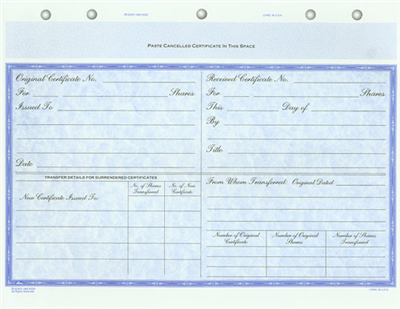 PASTE CANCELLED CERTIFICATE IN THIS SPACE
Original Certificate No.
For Shares
Issued To
Date
TRANSFER DETAILS FOR SURRENDERED CERTIFICATES
New Certificate Issued To:
No. of Shares Transferred
No. of New Certificate
Received Certificate No.
For Shares
This Day of
By
Title:
From Whom Transferred: Original Dated
Number of Original Certificate
Number of Original Shares
Number of Shares Transferred